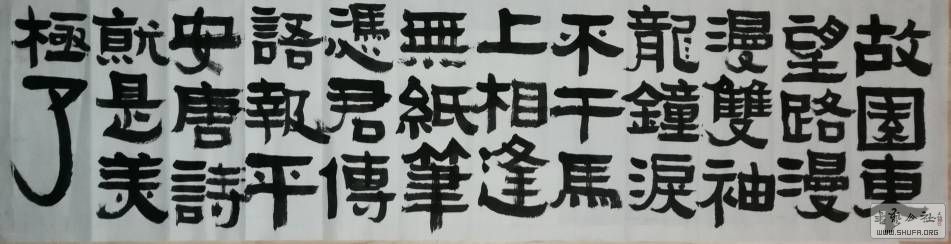 故園東
望路漫
漫雙袖
龍鐘淚
不干馬
上相逢
無紙筆
憑君傳
語報平
安唐詩
就是美
極了
WWW.SHUFA.ORG